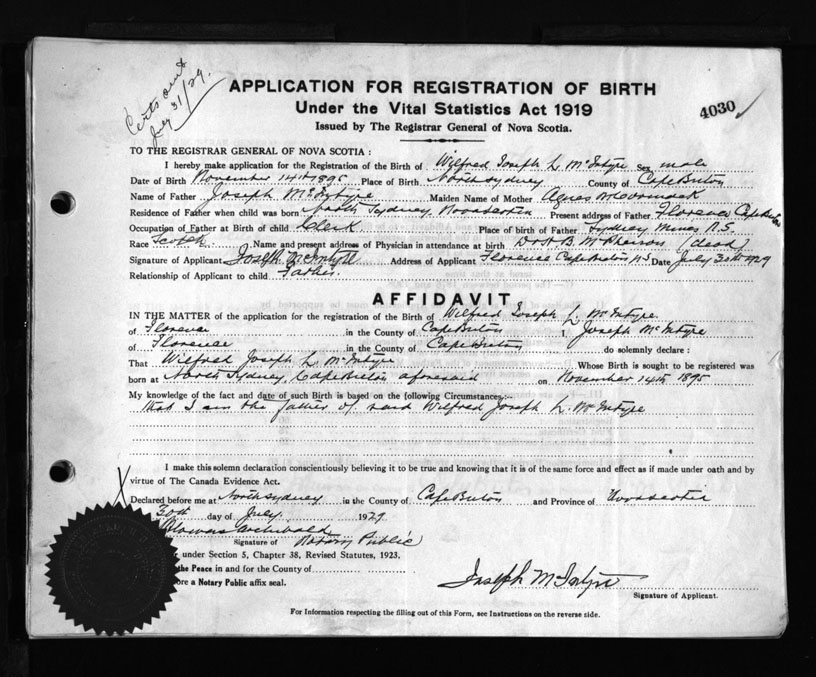 Certs out
July 31/29.
APPLICATION FOR REGISTRATION OF BIRTH
Under the Vital Statistics Act 1919
4030
Issued by The Registrar General of Nova Scotia.
TO THE REGISTRAR GENERAL OF NOVA SCOTIA :
I hereby make application for the Registration of the Birth of Wilfred Joseph L. McIntyre Sex male
Date of Birth November 14th 1895 Place of Birth North Sydney County of Cape Breton
Name of Father Joseph McIntyre Maiden Name of Mother Agnes McCormack
Residence of Father when child was born North Sydney Nova Scotia Present address of Father Florence Cape Breton
Occupation of Father at Birth of child Clerk Place of birth of Father Sydney Mines N.S.
Race Scotch Name and present address of Physician in attendance at birth Dr. B. McPherson (dead)
Signature of Applicant Joseph McIntyre Address of Applicant Florence Cape Breton N.S Date July 30th 1929
Relationship of Applicant to child Father.
AFFIDAVIT
IN THE MATTER of the application for the registration of the Birth of Wilfred Joseph L. McIntyre
of Florence in the County of Cape Breton I, Joseph McIntyre
of Florence in the County of Cape Breton do solemnly declare :
That Wilfred Joseph L. McIntyre Whose Birth is sought to be registered was
born at North Sydney, Cape Breton aforesaid on November 14th 1895
My knowledge of the fact and date of such Birth is based on the following Circumstances,:-
that I am the father of said Wilfred Joseph L. McIntyre
I make this solemn declaration conscientiously believing it to be true and knowing that it is of the same force and effect as if made under oath and by
virtue of The Canada Evidence Act.
X
Declared before me at North Sydney in the County of Cape Breton and Province of Nova Scotia
30th day of July 1929
Archibald
Signature of Notary Public
under Section 5, Chapter 38, Revised Statutes, 1923.
the Peace in and for the County of
ore a Notary Public affix seal.
Joseph McIntyre
Signature of Applicant.
For Information respecting the filling out of this Form, see Instructions on the reverse side.